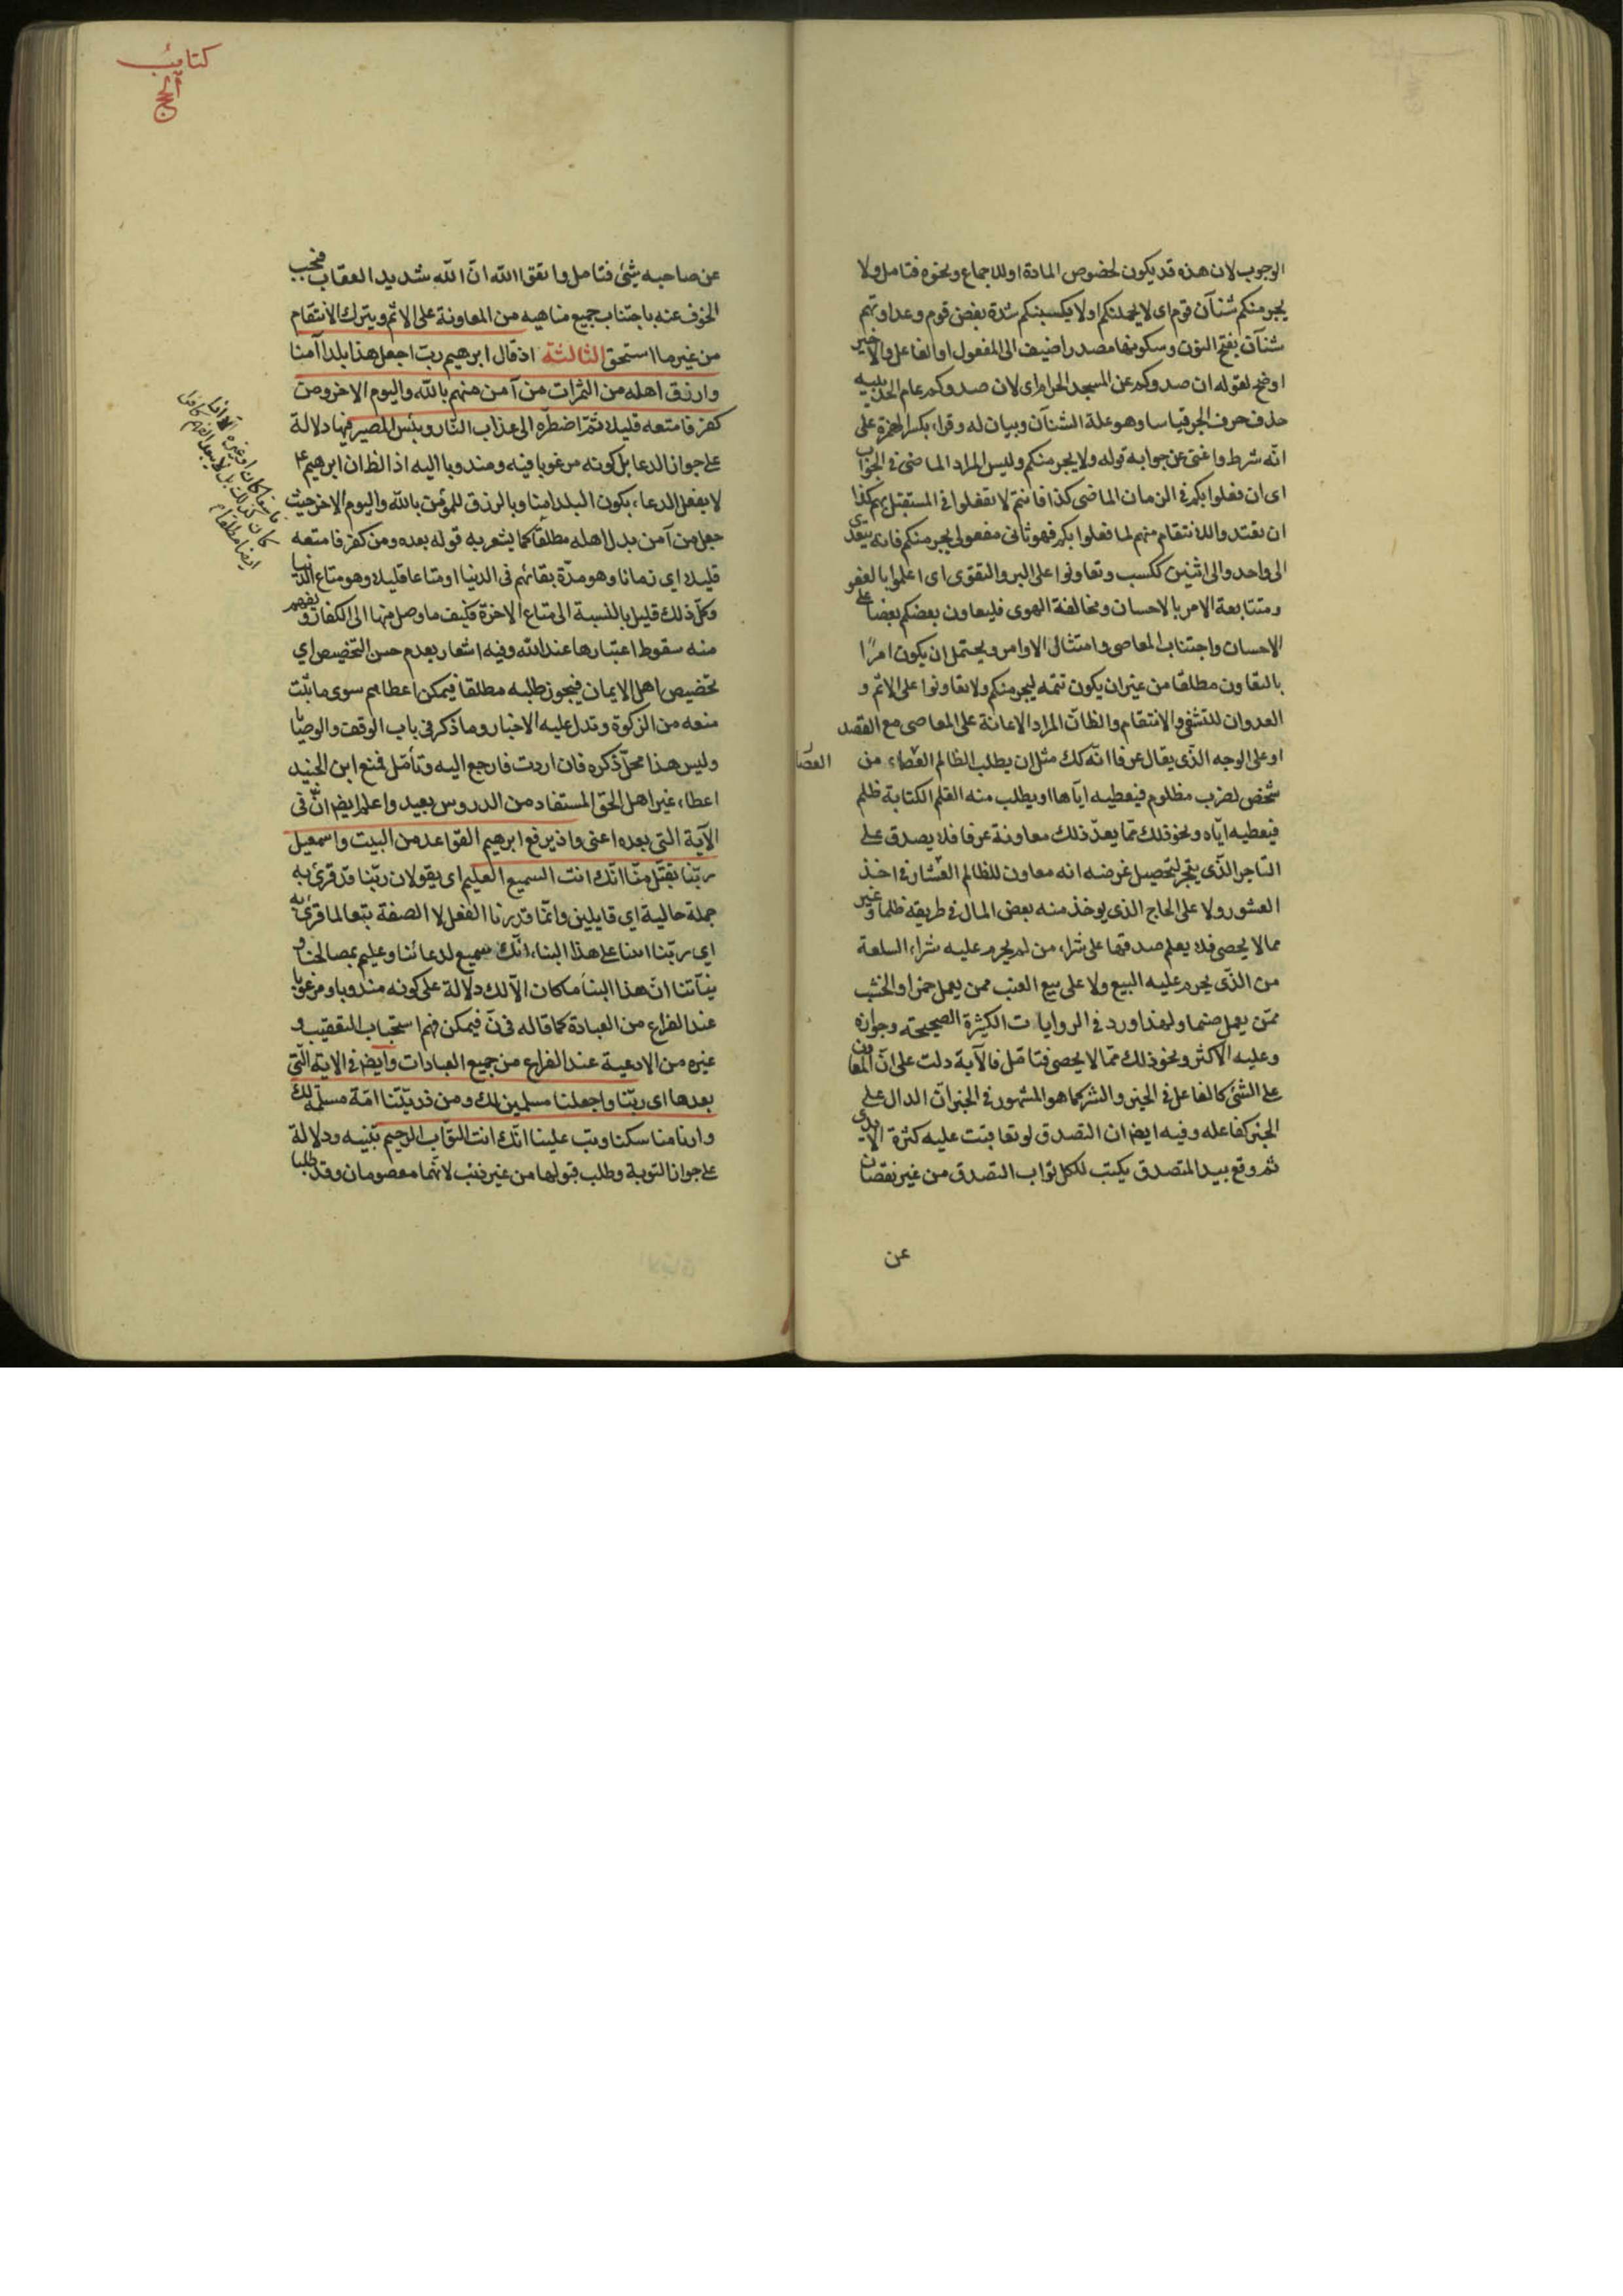 الوجوب لان هذه قد يكون لخصوص المادة او للاجماع ونحوه فتامل ولا
يجرمنكم شنآن قوم اى لا يحملنكم او لا يكسبنكم شدة بغض قوم وعداوتهم
شنآن بفتح النون وسكونها مصدر اضيف الى المفعول او الفاعل والاخير
اوضح لقوله ان صدوكم عن المسجد الحرام اى لان صدوكم عام الحديبيه
حذف حرف الجر قياسا وهو علة الشنآن وبيان له وقراء بكسر الهمزة على
انّه شرط واغنى عن جوابه قوله ولا يجرمنكم وليس المراد الماضى فى الجواب
اى ان فعلوا بكم فى الزمان الماضى كذا فانتم لا تفعلوا فى المستقبل بهم كذا
ان تعتدوا للانتقام منهم لما فعلوا بكم فهو ثانى مفعولى يجرمنكم فانه يتعدى
الى واحد والى اثنين ككسب وتعاونوا على البر والتقوى اى اعلموا بالعفو
ومتتابعة الامر بالاحسان ومخالفة الهوى فليعاون بعضكم بعضا على
الاحسان واجتناب المعاصى وامتثال الاوامر ويحتمل ان يكون امرًا
بالتعاون مطلقا من غير ان يكون تتمه ليجرمنكم ولا تعاونوا على الاثم و
العدوان للتشفى والانتقام والظانّ المراد الاعانة على المعاصى مع القصد
او على الوجه الذّى يقال عرفا انّه كك مثل ان يطلب الظالم العصاء من
العصا
شخص لضرب مظلوم فيعطيه ايّاها او يطلب منه القلم لكتابة ظلم
فيعطيه ايّاه ونحو ذلك ممّا يعدّ ذلك معاونة عرفا فلا يصدق على
التاجر الذّى يتجر لتحصيل غرضه انه معاون للظالم العشار فى اخذ
العشور ولا على الحاج الذى يوخذ منه بعض المال فى طريقة ظلما وغير
مما لا يحصى فلا يعلم صدقها على شراء من لم يحرم عليه شراء السلعة
من الذّى يحرم عليه البيع ولا على بيع العنب ممن يعمل خمرا والخشب
ممّن يعمل صنما ولهذا ورد فى الروايات الكثيرة الصحيحته وجوازه
وعليه الاكثر ونحو ذلك ممّا لا يحصى فتامّل فالآية دلت على انّ المعاون
على الشئ كالفاعل فى الخير والشر كما هو المشهور فى الخبر انّ الدال على
الخير كفاعله وفيه ايضا ان التصدق لو تعاقبت عليه كثرة الايدى
ثم وقع بيد المتصدق يكتب لكل ثواب التصدق من غير نقصان
عن
كتاب
الحج
عن صاحبه شئ فتامل واتقوا الله انّ الله شديد العقاب فيجب
الخوف عنه باجتناب جميع مناهيه من المعاونة على الاثم ويترك الانتقام
من غير ما استحق الثالثة اذ قال ابرهيم ربّ اجعل هذا بلدا آمنا
وارزق اهله من الثمرات من آمن منهم بالله واليوم الاخر ومن
كفر فامتعه قليلا ثمّ اضطرّه الى عذاب النّار وبئس المصير فيها دلالة
على جواز الدعا بل كونه مرغوبا فيه ومندوبا اليه اذ الظ ان ابرهيم ع
لا يفعل الدعاء بكون البلد امنا وبالرزق للمؤمن بالله واليوم الاخر حيث
جعل من آمن بدل اهله مطلقا كما يشعر به قوله بعده ومن كفر فامتعه
قليلا اى زمانا وهو مدّة بقائهم فى الدنيا او متاعا قليلا وهو متاع الدنيا
وكلّ ذلك قليل بالنسبة الى متاع الاخرة فكيف ما وصل منها الى الكفار ويفهم
منه سقوط اعتبارها عند الله وفيه اشعار بعدم حسن التخصيص اي
تخصيص اهل الايمان فيجوز طلبه مطلقا فيمكن اعطاهم سوى ما ثبت
منعه من الزكوة وتدل عليه الاخبار وما ذكر فى باب الوقف والوصيا
وليس هذا محلّ ذكره فان اردت فارجع اليه وتأمّل فمنع ابن الجنيد
اعطاء غير اهل الحق المستفاد من الدروس بعيد واعلم ايض انّ فى
الآية التى بعده اعنى واذ يرفع ابرهيم القواعد من البيت واسمعيل
ربّنا تقبّل منّا انّك انت السميع العليم اى يقولان ربّنا وقد قرئ به
جملة حالية اي قايلين وانّما قدرنا الفعل لا الصفة تبعا لما قرئ به
اي ربّنا اثبنا على هذا البناء انّك سميع لدعائنا وعليم بمصالحنا و
نيّاتنا انّ هذا البناء ما كان الّا لك دلالة على كونه مندوبا ومرغوبا
عند الفراغ من العبادة كما قاله فى ن فيمكن فهم استحباب التعقيب و
غيره من الادعية عند الفراغ من جميع العبادات وايض فى الاية الّتى
بعدها اى ربّنا واجعلنا مسلمين لك ومن ذريّتنا امّة مسلمة لك
وارنا مناسكنا وتب علينا انّك انت التوّاب الرحيم تنبيه ودلالة
على جواز التوبة وطلب قبولها من غير ذنب لانّهما معصومان وقد طلبا